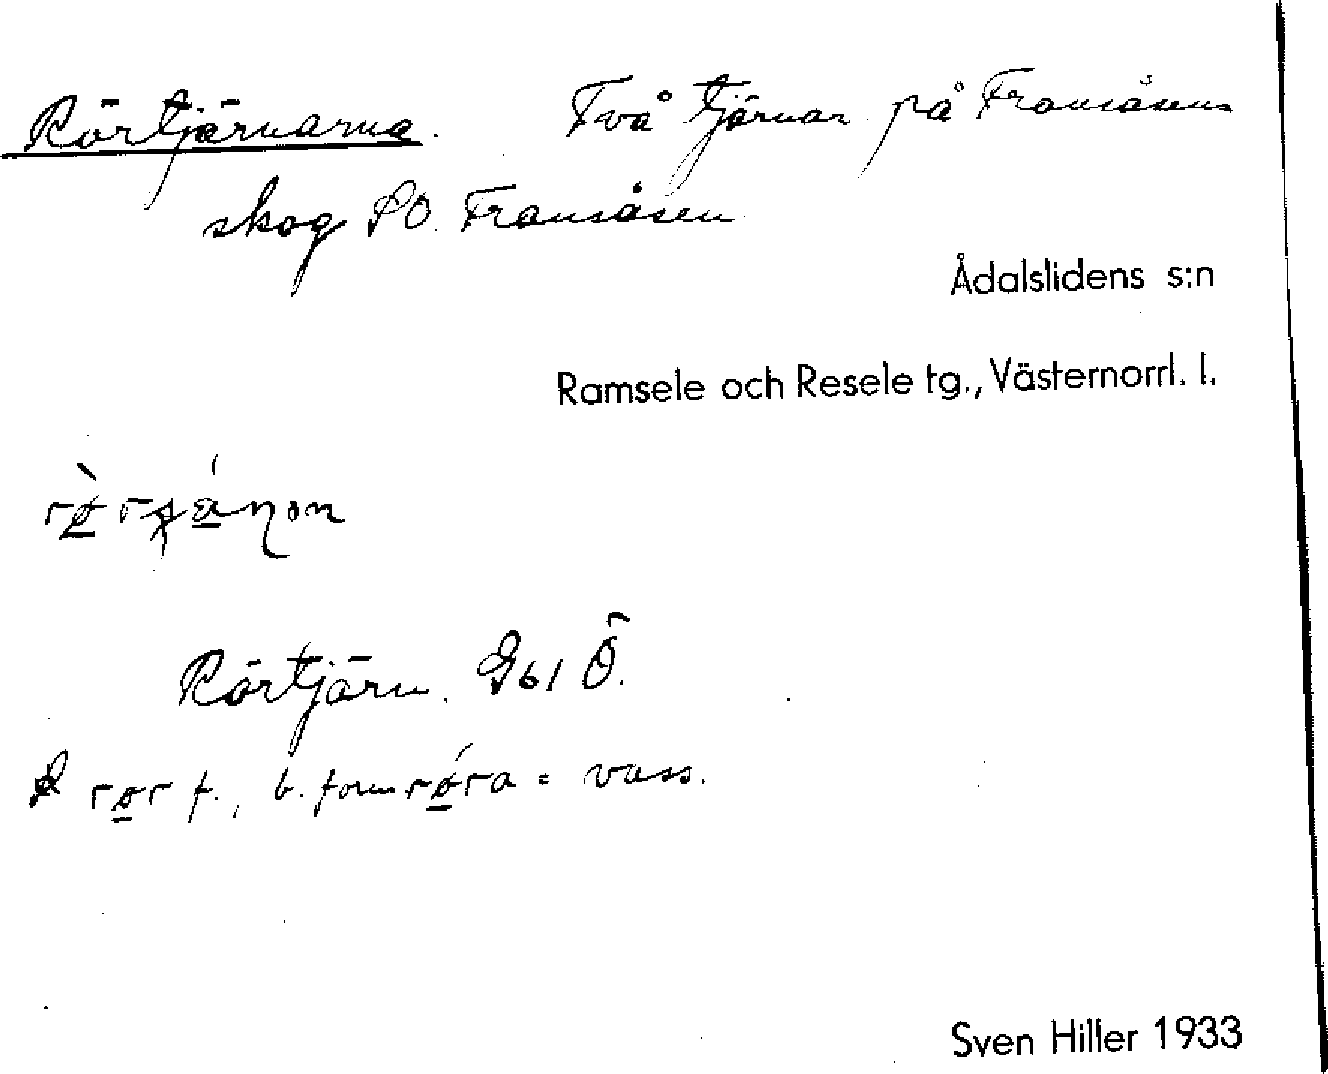 Rörtjärnarna. Två tjärnar på Fransåsens
skog SO. Fransåsen
Ådalslidens s:n
Ramsele och Resele tg., Västernorrl. l.
Rörtjärn. G61 Ö.
rør f., b. form rǿra = vass.
Sven Hiller 1933